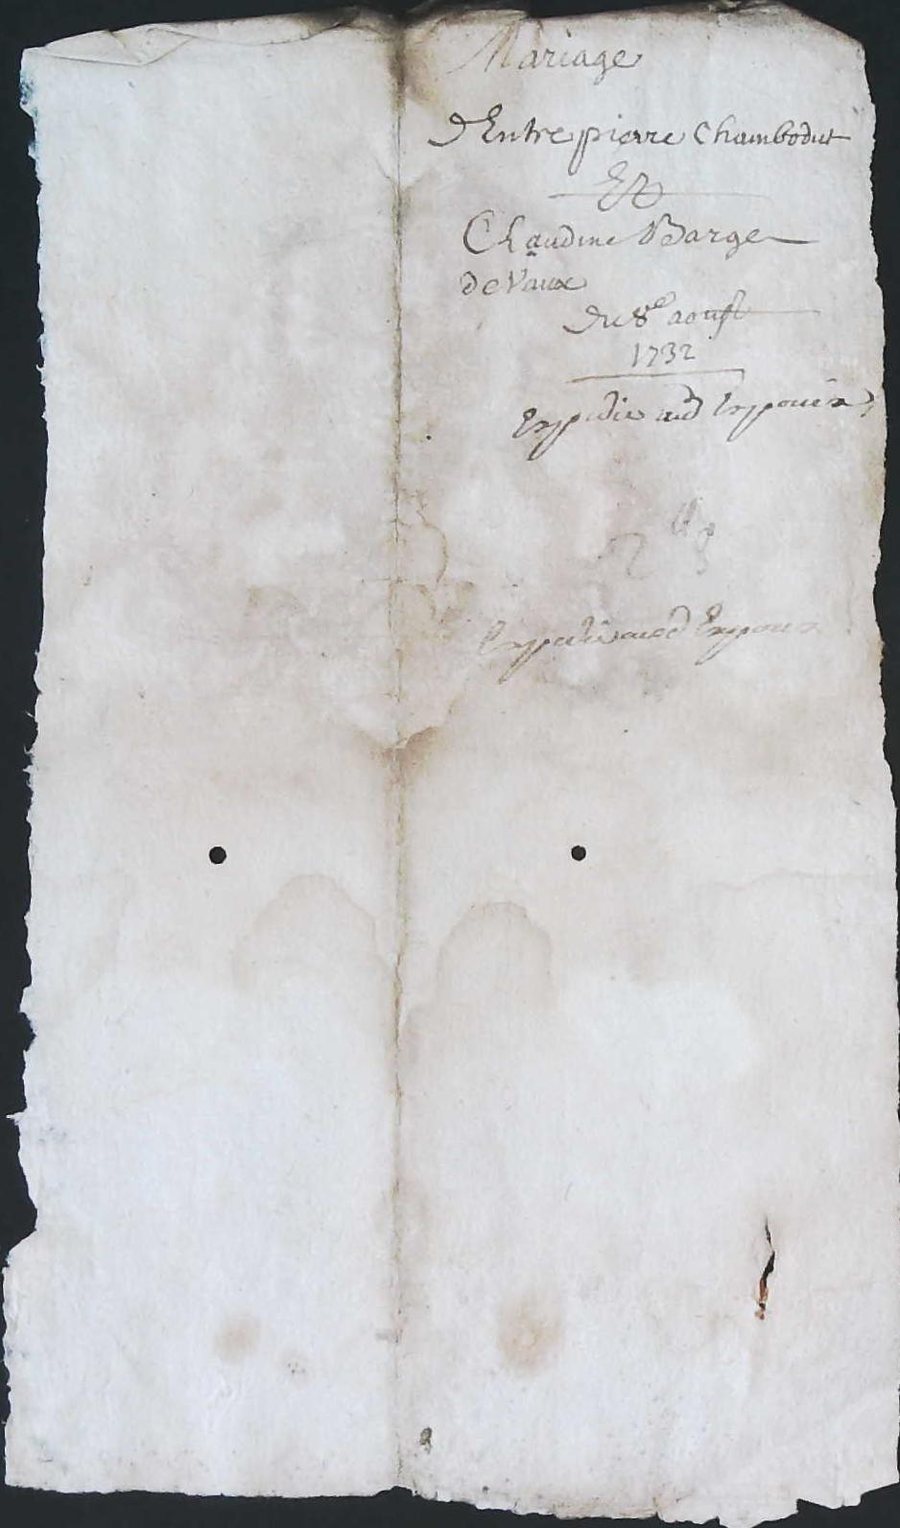 Mariage
D'Entre pierre Chambodut
Et
Claudine Barge
de Vaux
Du 8e aoust
1732
Expedie aud Expoux
Expedie aud Expoux